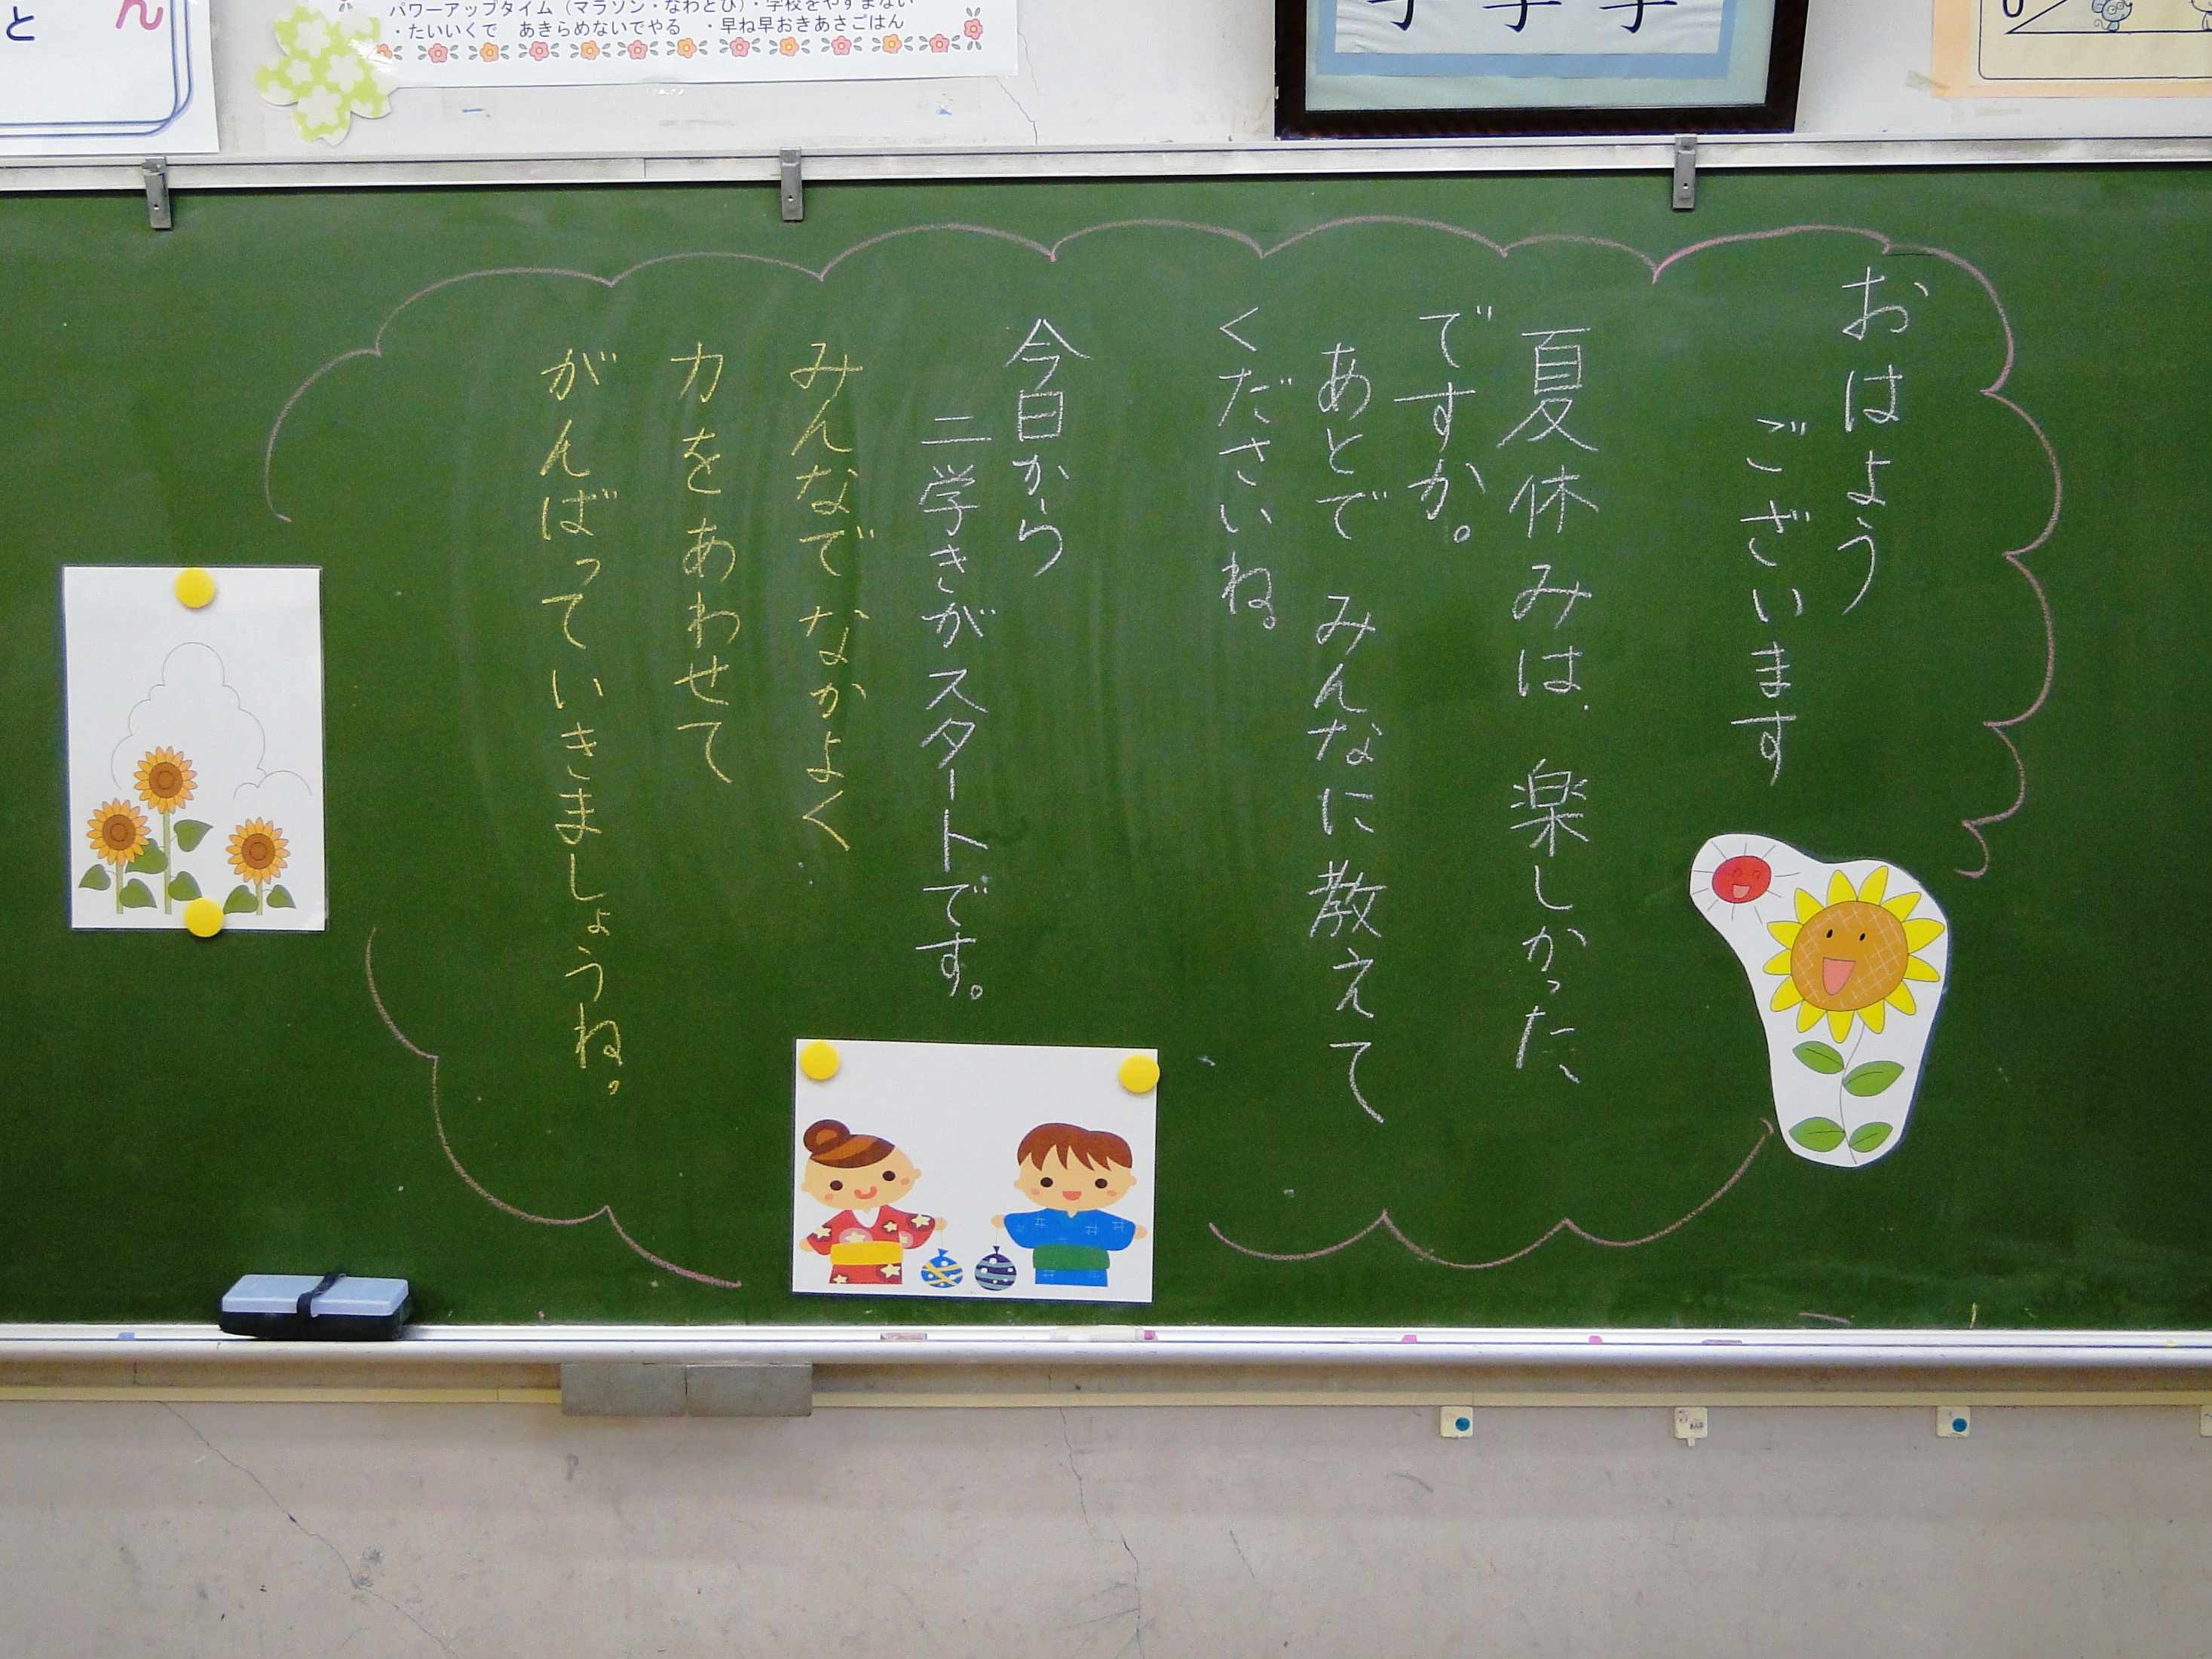 と
ん
パワーアップタイム(マラソン・なわとび)・学校をやすまない
・たいいくで　あきらめないでやる　・早ね早おきあさごはん
おはよう
ございます
夏休みは、楽しかった
ですか。
あとで　みんなに教えて
くださいね。
今日から
二学きがスタートです。
みんなで　なかよく
力をあわせて
がんばっていきましょうね。